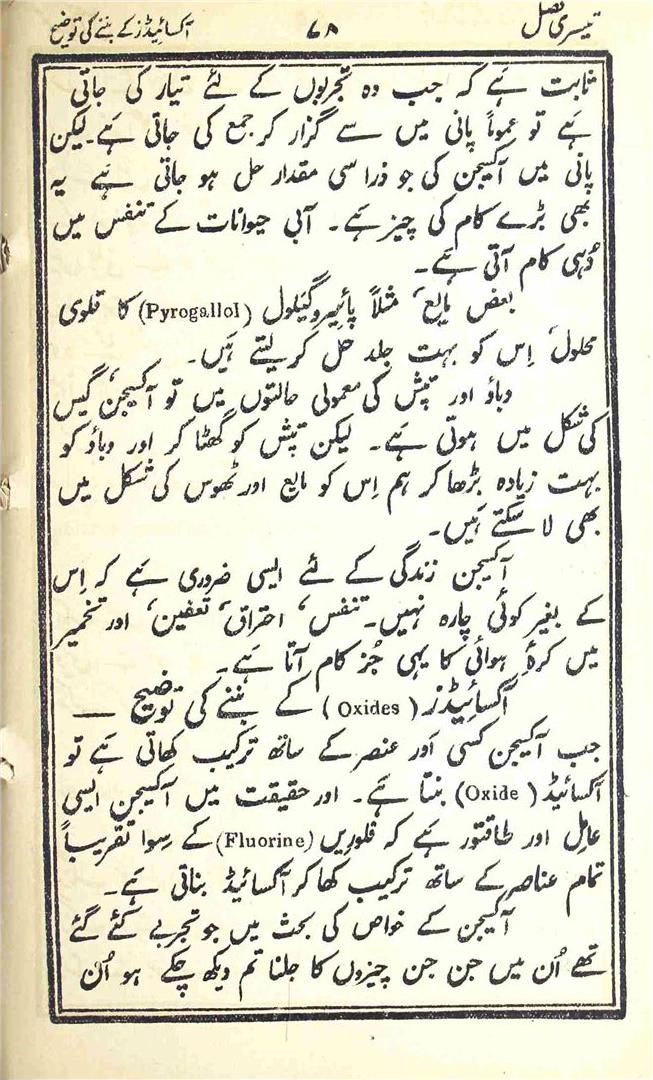 تیسری فصل ۷۸ آکسائیڈز کے بننے کی توضیح
ثابت ہے کہ جب وہ تجربوں کے لئے تیار کی جاتی
ہے تو عموماً پانی میں سے گزار کر جمع کی جاتی ہے۔ لیکن
پانی میں آکسیجن کی جو ذرا سی مقدار حل ہو جاتی ہے یہ
بھی بڑے کام کی چیز ہے۔ آبی حیوانات کے تنفس میں
وُہی کام آتی ہے۔
بعض مایع، مثلاً پائیروگیلول (Pyrogallol) کا قلوی
محلول، اِس کو بہت جلد حل کر لیتے ہَیں۔
دباؤ اور تپش کی معمولی حالتوں میں تو آکسیجن، گیس
کی شکل میں ہوتی ہے۔ لیکن تپش کو گھٹا کر اور دباؤ کو
بہت زیادہ بڑھا کر ہم اِس کو مایع اور ٹھوس کی شکل میں
بھی لا سکتے ہَیں۔
آکسیجن زندگی کے لئے ایسی ضروری ہے کہ اِس
کے بغیر کوئی چارہ نہیں۔ تنفس، احتراق، تعفین، اور تخمیر
میں کرۂ ہوائی کا یہی جُز کام آتا ہے۔
آکسائیڈز (Oxides) کے بننے کی توضیح —
جب آکسیجن کسی اَور عنصر کے ساتھ ترکیب کھاتی ہے تو
آکسائیڈ (Oxide) بنتا ہے۔ اور حقیقت میں آکسیجن ایسی
عامِل اور طاقتور ہے کہ فلورِیں (Fluorine) کے سِوا تقریباً
تمام عناصر کے ساتھ ترکیب کھا کر آکسائیڈ بناتی ہے۔
آکسیجن کے خواص کی بحث میں جو تجربے کئے گئے
تھے اُن میں جن جن چیزوں کا جلنا تم دیکھ چکے ہو اُن